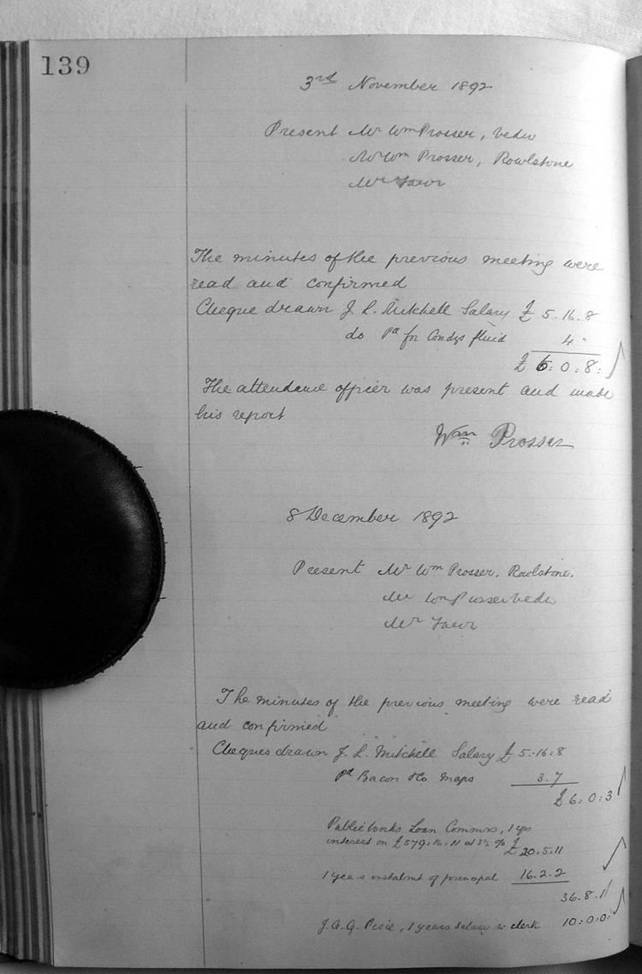 139
3rd November 1892
Present Mr Wm Prosser, Vedw
Mr Wm Prosser, Rowlstone
Mr Fawr
The minutes of the previous meeting were
read and confirmed
Cheque drawn J. L. Mitchell Salary £ 5.16.8
do Pd for Condys fluid 4.
£ 6.0.8.
The attendance officer was present and made
his report
Wm Prosser
8 December 1892
Present Mr Wm Prosser, Rowlstone.
Mr Wm Prosser Vedw
Mr Fawr
The minutes of the previous meeting were read
and confirmed
Cheques drawn J. L. Mitchell Salary £ 5.16.8
Pd Bacon & Co. Maps 3.7
£6.0.3
Public Works Loan Commrs, 1 yrs
interest on £579. 11 at 3½ % £ 20.5.11
1 years instalmt of principal 16.2.2
36.8.1
J.G.G. 1 years Salary as clerk 10:0:0